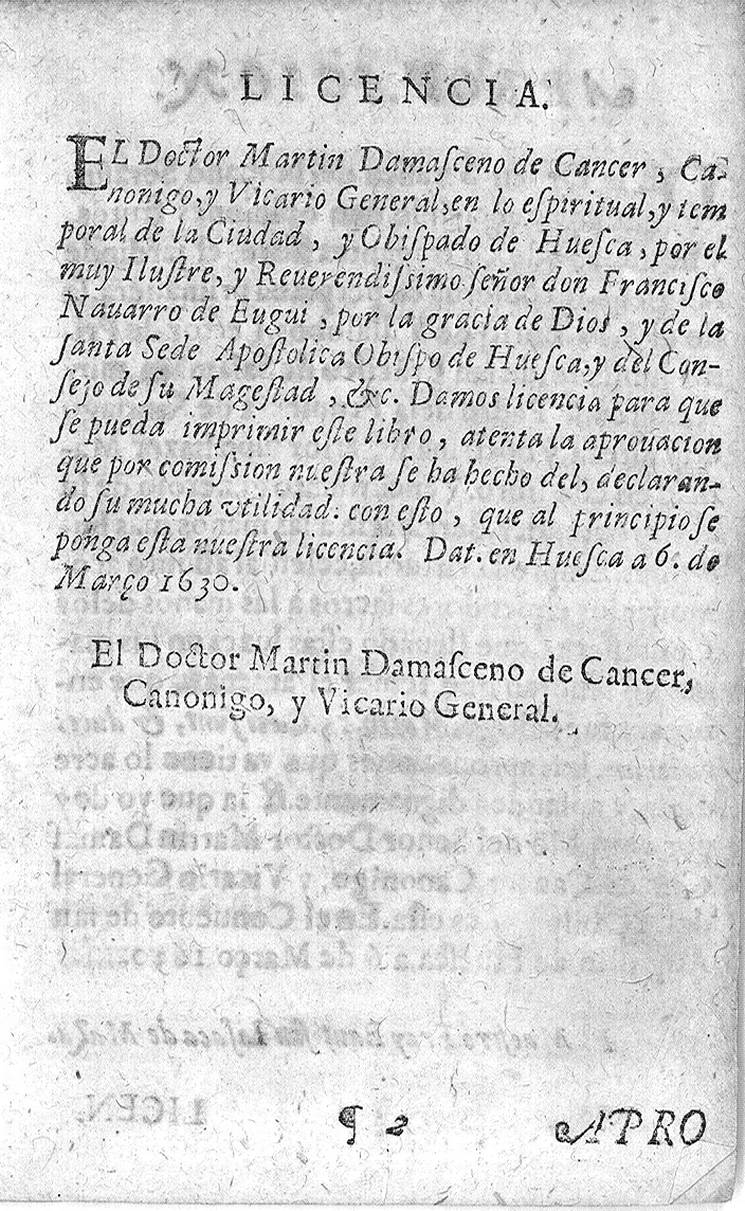 LICENCIA.
EL Doctor Martin Damaſceno de Cancer, Ca-
nonigo, y Vicario General, en lo eſpiritual, y tem
poral de la Ciudad, y Obiſpado de Hueſca, por el
muy Iluſtre, y Reuerendiſsimo ſeñor don Franciſco
Nauarro de Eugui, por la gracia de Dios, y de la
ſanta Sede Apoſtolica Obiſpo de Hueſca, y del Con-
ſejo de ſu Mageſtad, &c. Damos licencia para que
ſe pueda imprimir eſte libro, atenta la aprouacion
que por comiſsion nueſtra ſe ha hecho del, declaran-
do ſu mucha vtilidad: con eſto, que al principio ſe
ponga eſta nueſtra licencia. Dat. en Hueſca a 6. de
Março 1630.
El Doctor Martin Damaſceno de Cancer,
Canonigo, y Vicario General.
¶ 2 APRO